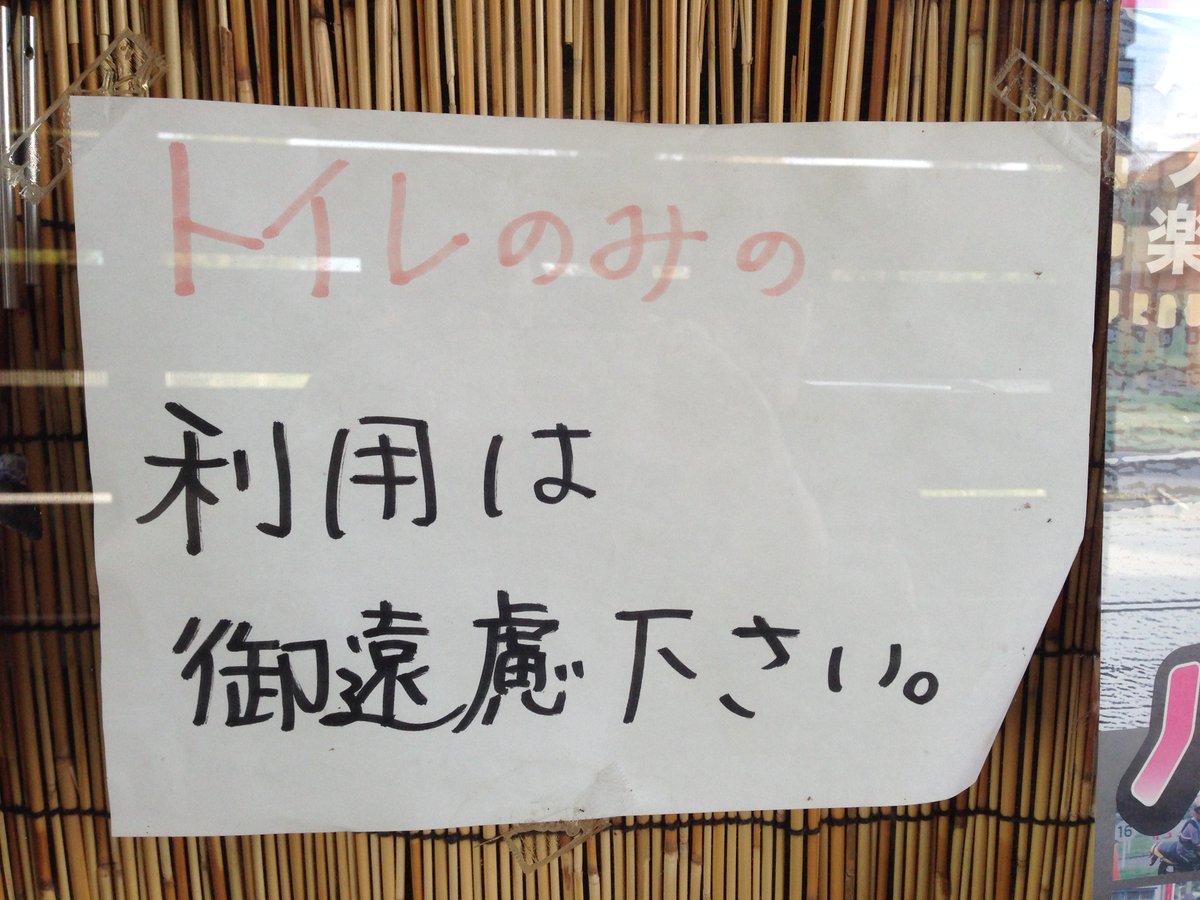 トイレのみの
利用は
御遠慮下さい。
楽
16